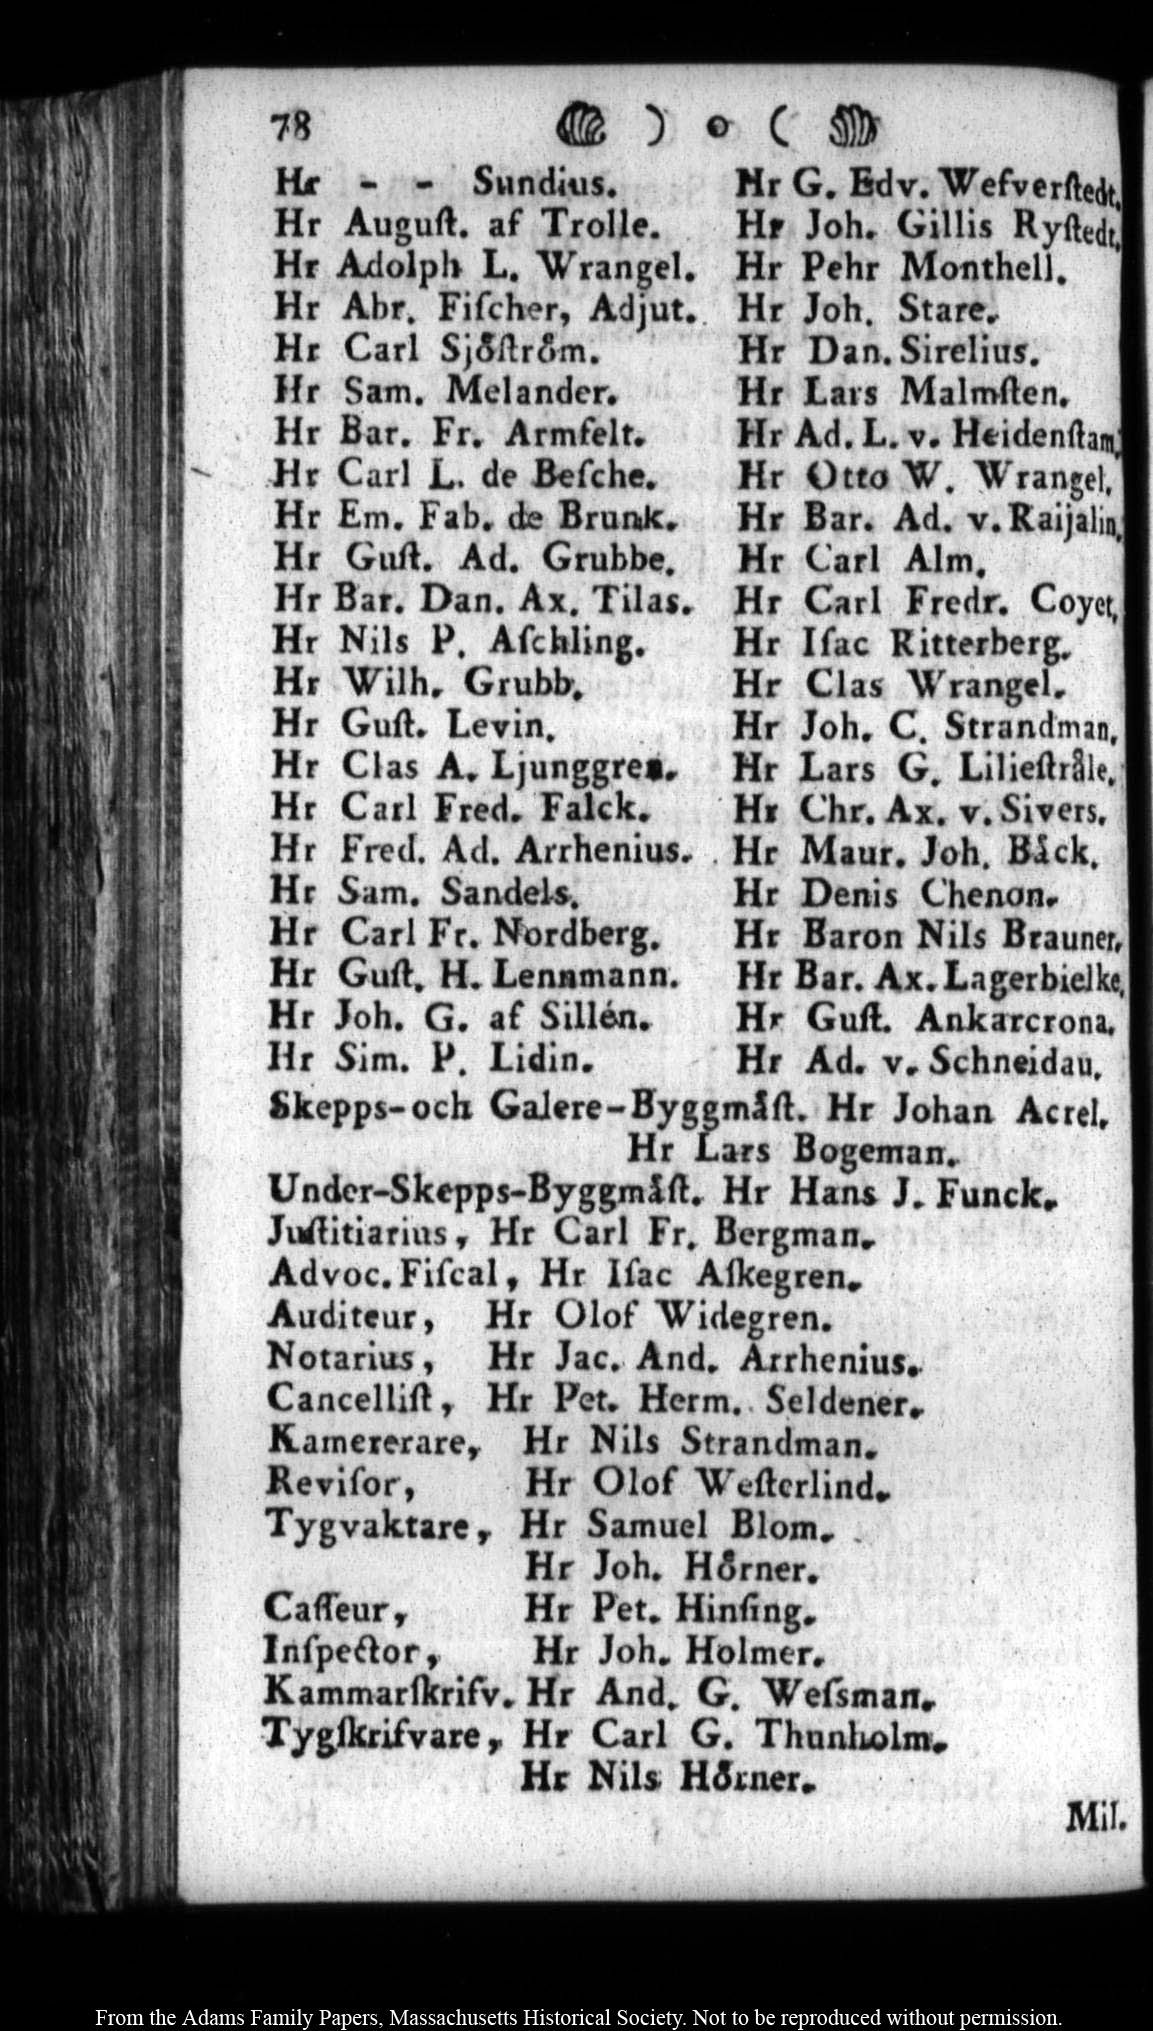 78 ) o (
Hr - - Sundius.
Hr Auguſt. af Trolle.
Hr Adolph L. Wrangel.
Hr Abr. Fiſcher, Adjut.
Hr Carl Sjöſtröm.
Hr Sam. Melander.
Hr Bar. Fr. Armfelt.
Hr Carl L. de Beſche.
Hr Em. Fab. de Brunk.
Hr Guſt. Ad. Grubbe.
Hr Bar. Dan. Ax. Tilas.
Hr Nils P. Aſchling.
Hr Wilh. Grubb.
Hr Guſt. Levin.
Hr Clas A. Ljunggren.
Hr Carl Fred. Falck.
Hr Fred. Ad. Arrhenius.
Hr Sam. Sandels.
Hr Carl Fr. Nordberg.
Hr Guſt. H. Lennmann.
Hr Joh. G. af Sillén.
Hr Sim. P. Lidin.
Hr G. Edv. Wefverſtedt.
Hr Joh. Gillis Ryſtedt.
Hr Pehr Monthell.
Hr Joh. Stare.
Hr Dan. Sirelius.
Hr Lars Malmſten.
Hr Ad. L. v. Heidenſtam.
Hr Otto W. Wrangel.
Hr Bar. Ad. v. Raijalin.
Hr Carl Alm.
Hr Carl Fredr. Coyet.
Hr Iſac Ritterberg.
Hr Clas Wrangel.
Hr Joh. C. Strandman.
Hr Lars G. Lilieſtråle.
Hr Chr. Ax. v. Sivers.
Hr Maur. Joh. Bäck.
Hr Denis Chenon.
Hr Baron Nils Brauner.
Hr Bar. Ax. Lagerbielke.
Hr Guſt. Ankarcrona.
Hr Ad. v. Schneidau.
Skepps-och Galere-Byggmäſt. Hr Johan Acrel.
Hr Lars Bogeman.
Under-Skepps-Byggmäſt. Hr Hans J. Funck.
Juſtitiarius, Hr Carl Fr. Bergman.
Advoc. Fiſcal, Hr Iſac Aſkegren.
Auditeur, Hr Olof Widegren.
Notarius, Hr Jac. And. Arrhenius.
Cancelliſt, Hr Pet. Herm. Seldener.
Kamererare, Hr Nils Strandman.
Reviſor, Hr Olof Weſterlind.
Tygvaktare, Hr Samuel Blom.
Hr Joh. Hörner.
Caſſeur, Hr Pet. Hinſing.
Inſpector, Hr Joh. Holmer.
Kammarſkrifv. Hr And. G. Weſsman.
Tygſkrifvare, Hr Carl G. Thunholm.
Hr Nils Hörner.
Mil.
From the Adams Family Papers, Massachusetts Historical Society. Not to be reproduced without permission.